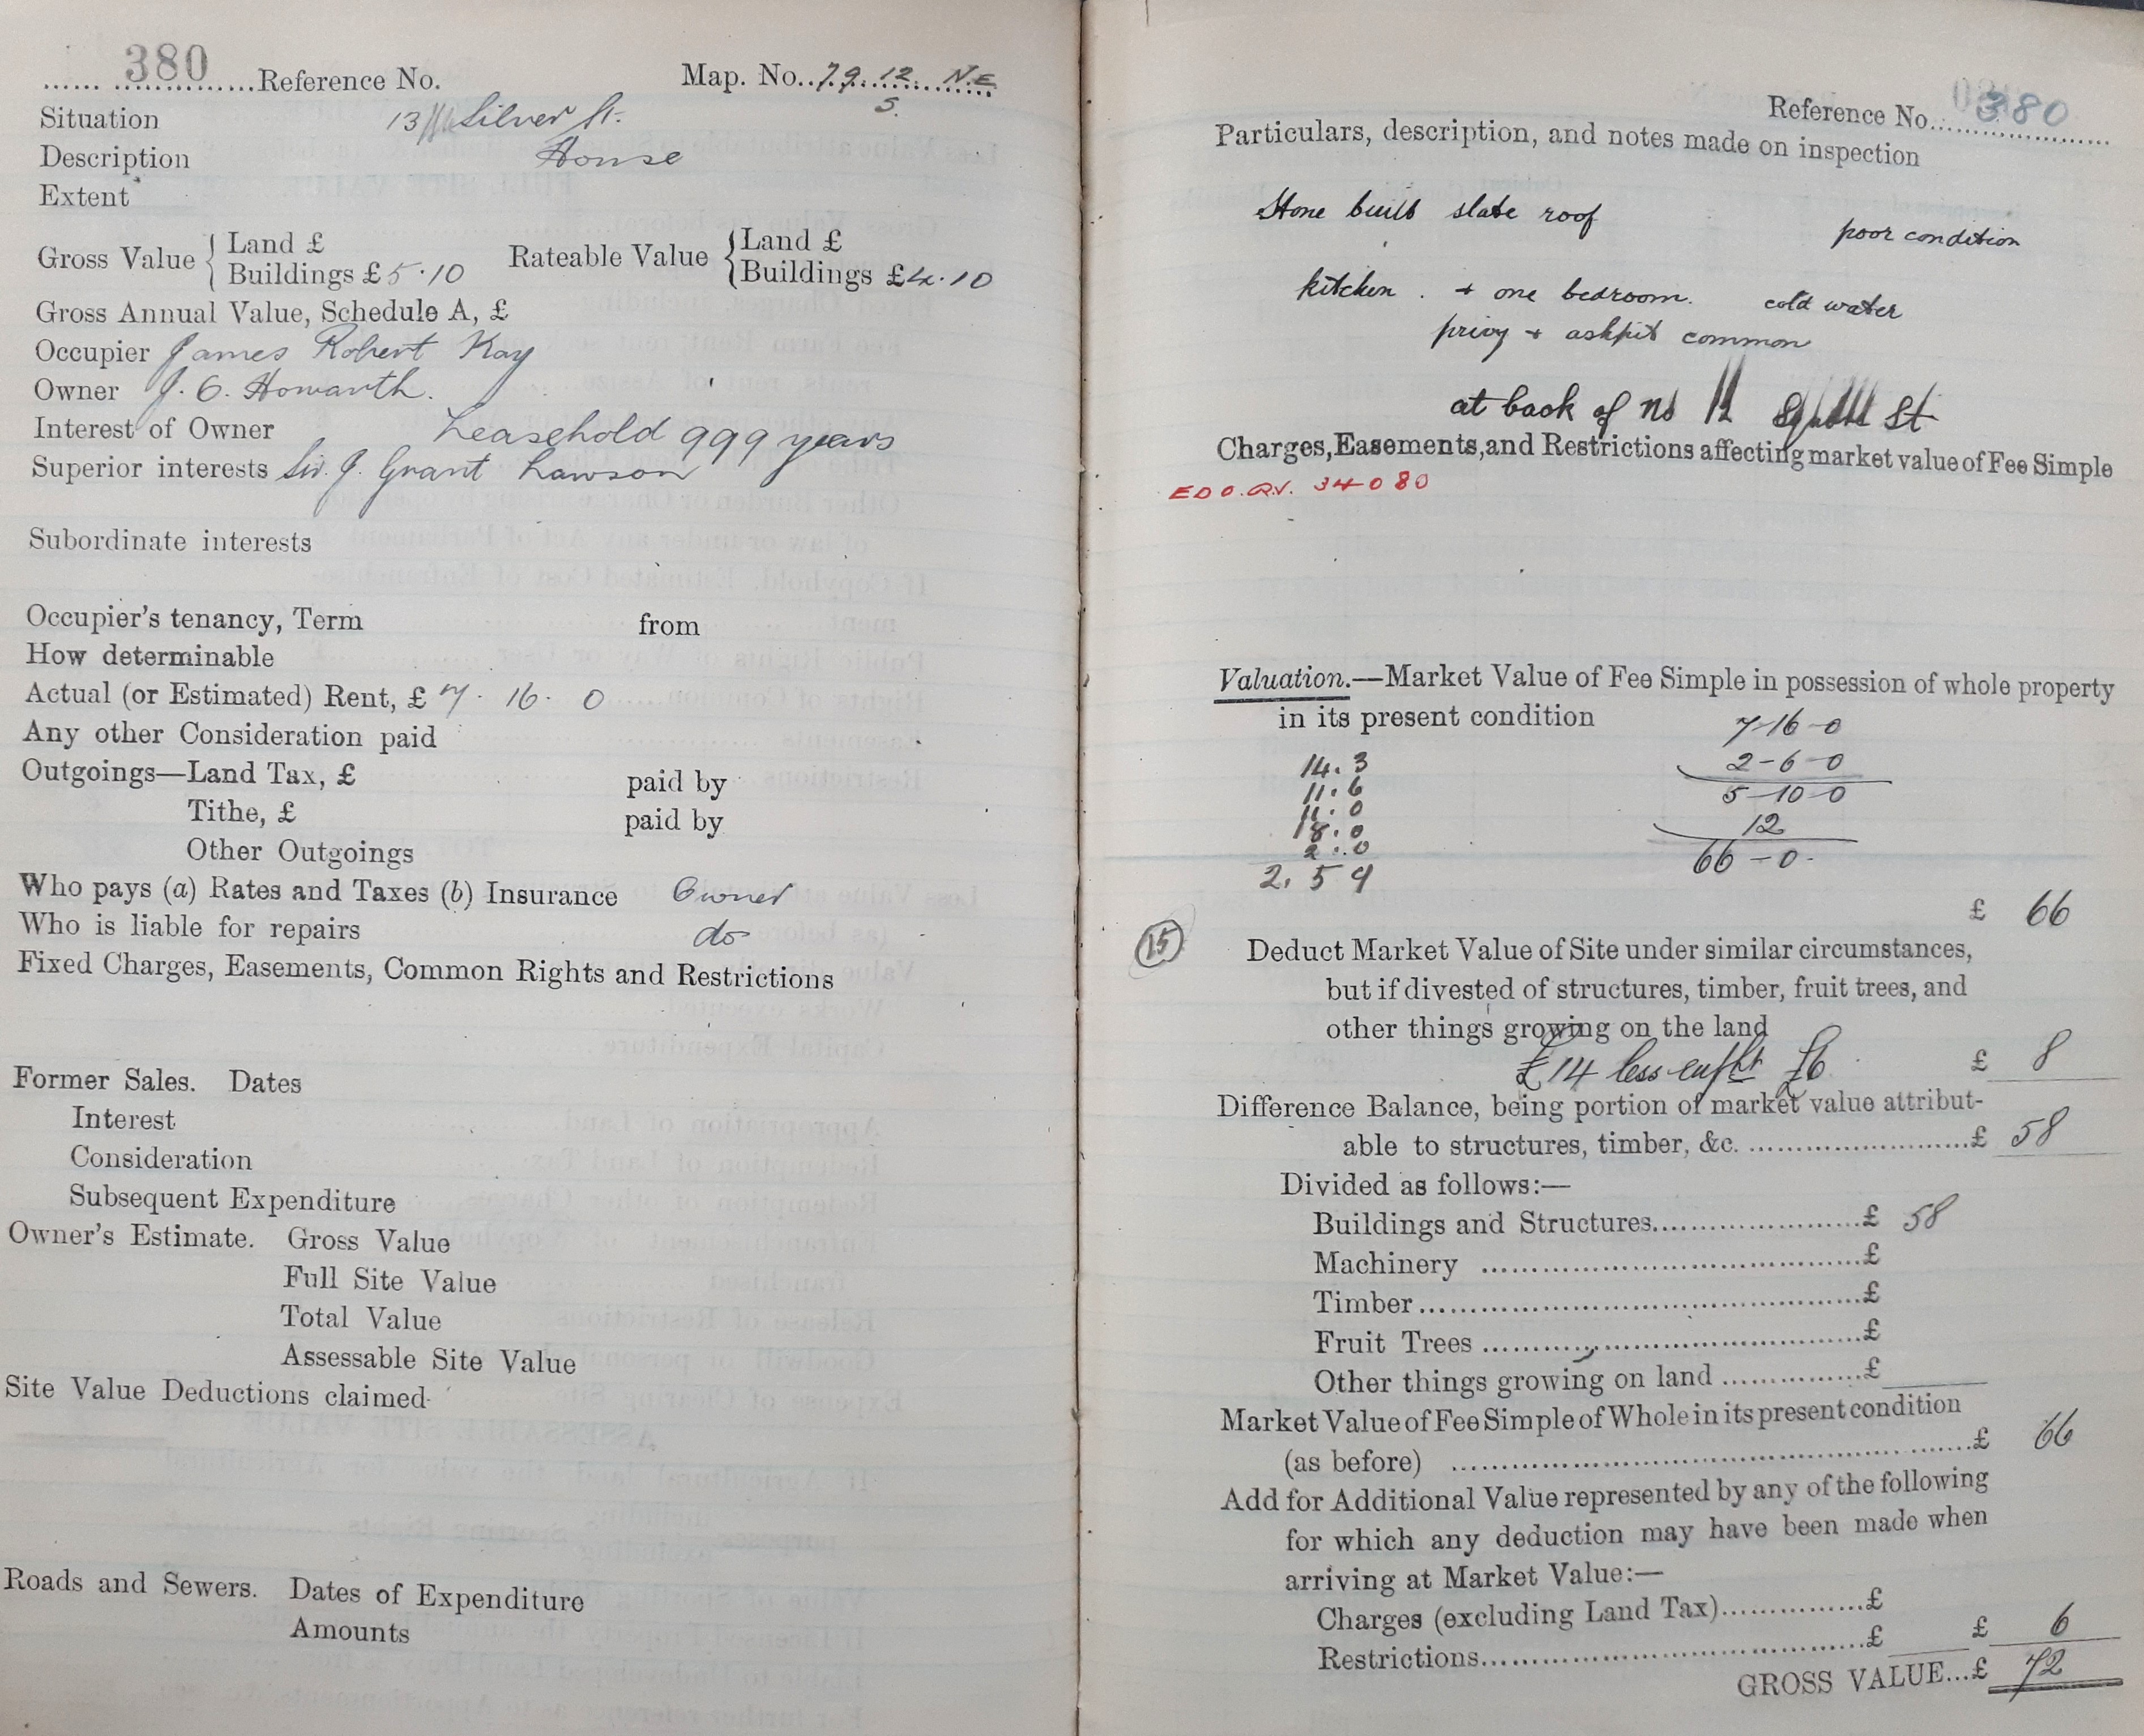 380 Reference No. Map. No. 79. 12. N.E
S.
Situation 13 Silver St.
Description House
Extent
Gross Value { Land £
Buildings £ 5.10
Rateable Value { Land £
Buildings £4.10
Gross Annual Value, Schedule A, £
Occupier James Robert Kay
Owner J. C. Howarth.
Interest of Owner Leasehold 999 years
Superior interests Sir. J. Grant Lawson
Subordinate interests
Occupier's tenancy, Term from
How determinable
Actual (or Estimated) Rent, £ 7. 16. 0
Any other Consideration paid
Outgoings—Land Tax, £ paid by
Tithe, £ paid by
Other Outgoings
Who pays (a) Rates and Taxes (b) Insurance Owner
Who is liable for repairs do
Fixed Charges, Easements, Common Rights and Restrictions
Former Sales. Dates
Interest
Consideration
Subsequent Expenditure
Owner's Estimate. Gross Value
Full Site Value
Total Value
Assessable Site Value
Site Value Deductions claimed
Roads and Sewers. Dates of Expenditure
Amounts
Reference No. 380
Particulars, description, and notes made on inspection
Stone built slate roof poor condition
kitchen. + one bedroom. cold water
privy + ashpit common
at back of no St
Charges, Easements, and Restrictions affecting market value of Fee Simple
EDO.QV. 34080
Valuation.—Market Value of Fee Simple in possession of whole property
in its present condition
7-16-0
2-6-0
5-10-0
12
66-0-
14.3
11.6
11.0
18.0
2.0
2. 5 9
£ 66
15
Deduct Market Value of Site under similar circumstances,
but if divested of structures, timber, fruit trees, and
other things growing on the land
£14 less £6 £ 8
Difference Balance, being portion of market value attribut-
able to structures, timber, &c. £ 58
Divided as follows:—
Buildings and Structures £ 58
Machinery £
Timber £
Fruit Trees £
Other things growing on land £
Market Value of Fee Simple of Whole in its present condition
(as before) £ 66
Add for Additional Value represented by any of the following
for which any deduction may have been made when
arriving at Market Value:—
Charges (excluding Land Tax) £
Restrictions £ £ 6
GROSS VALUE...£ 72